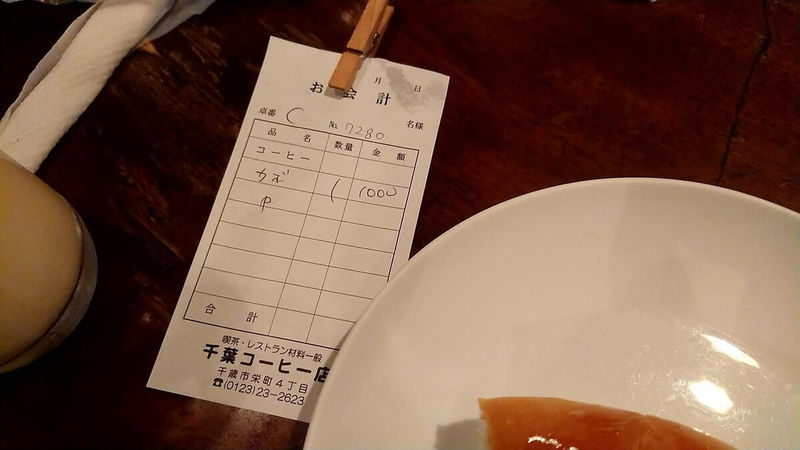 月 日
お会計
卓番 C No. 7280 名様
品名 数量 金額
コーヒー
カズ 1 1000
P
合計
喫茶・レストラン材料一般
千葉コーヒー店
千歳市栄町4丁目
☎(0123)23-2623